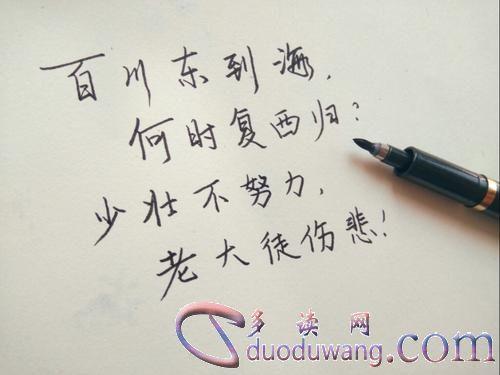 百川东到海,
何时复西归?
少壮不努力,
老大徒伤悲!
多读网
duoduwang.com